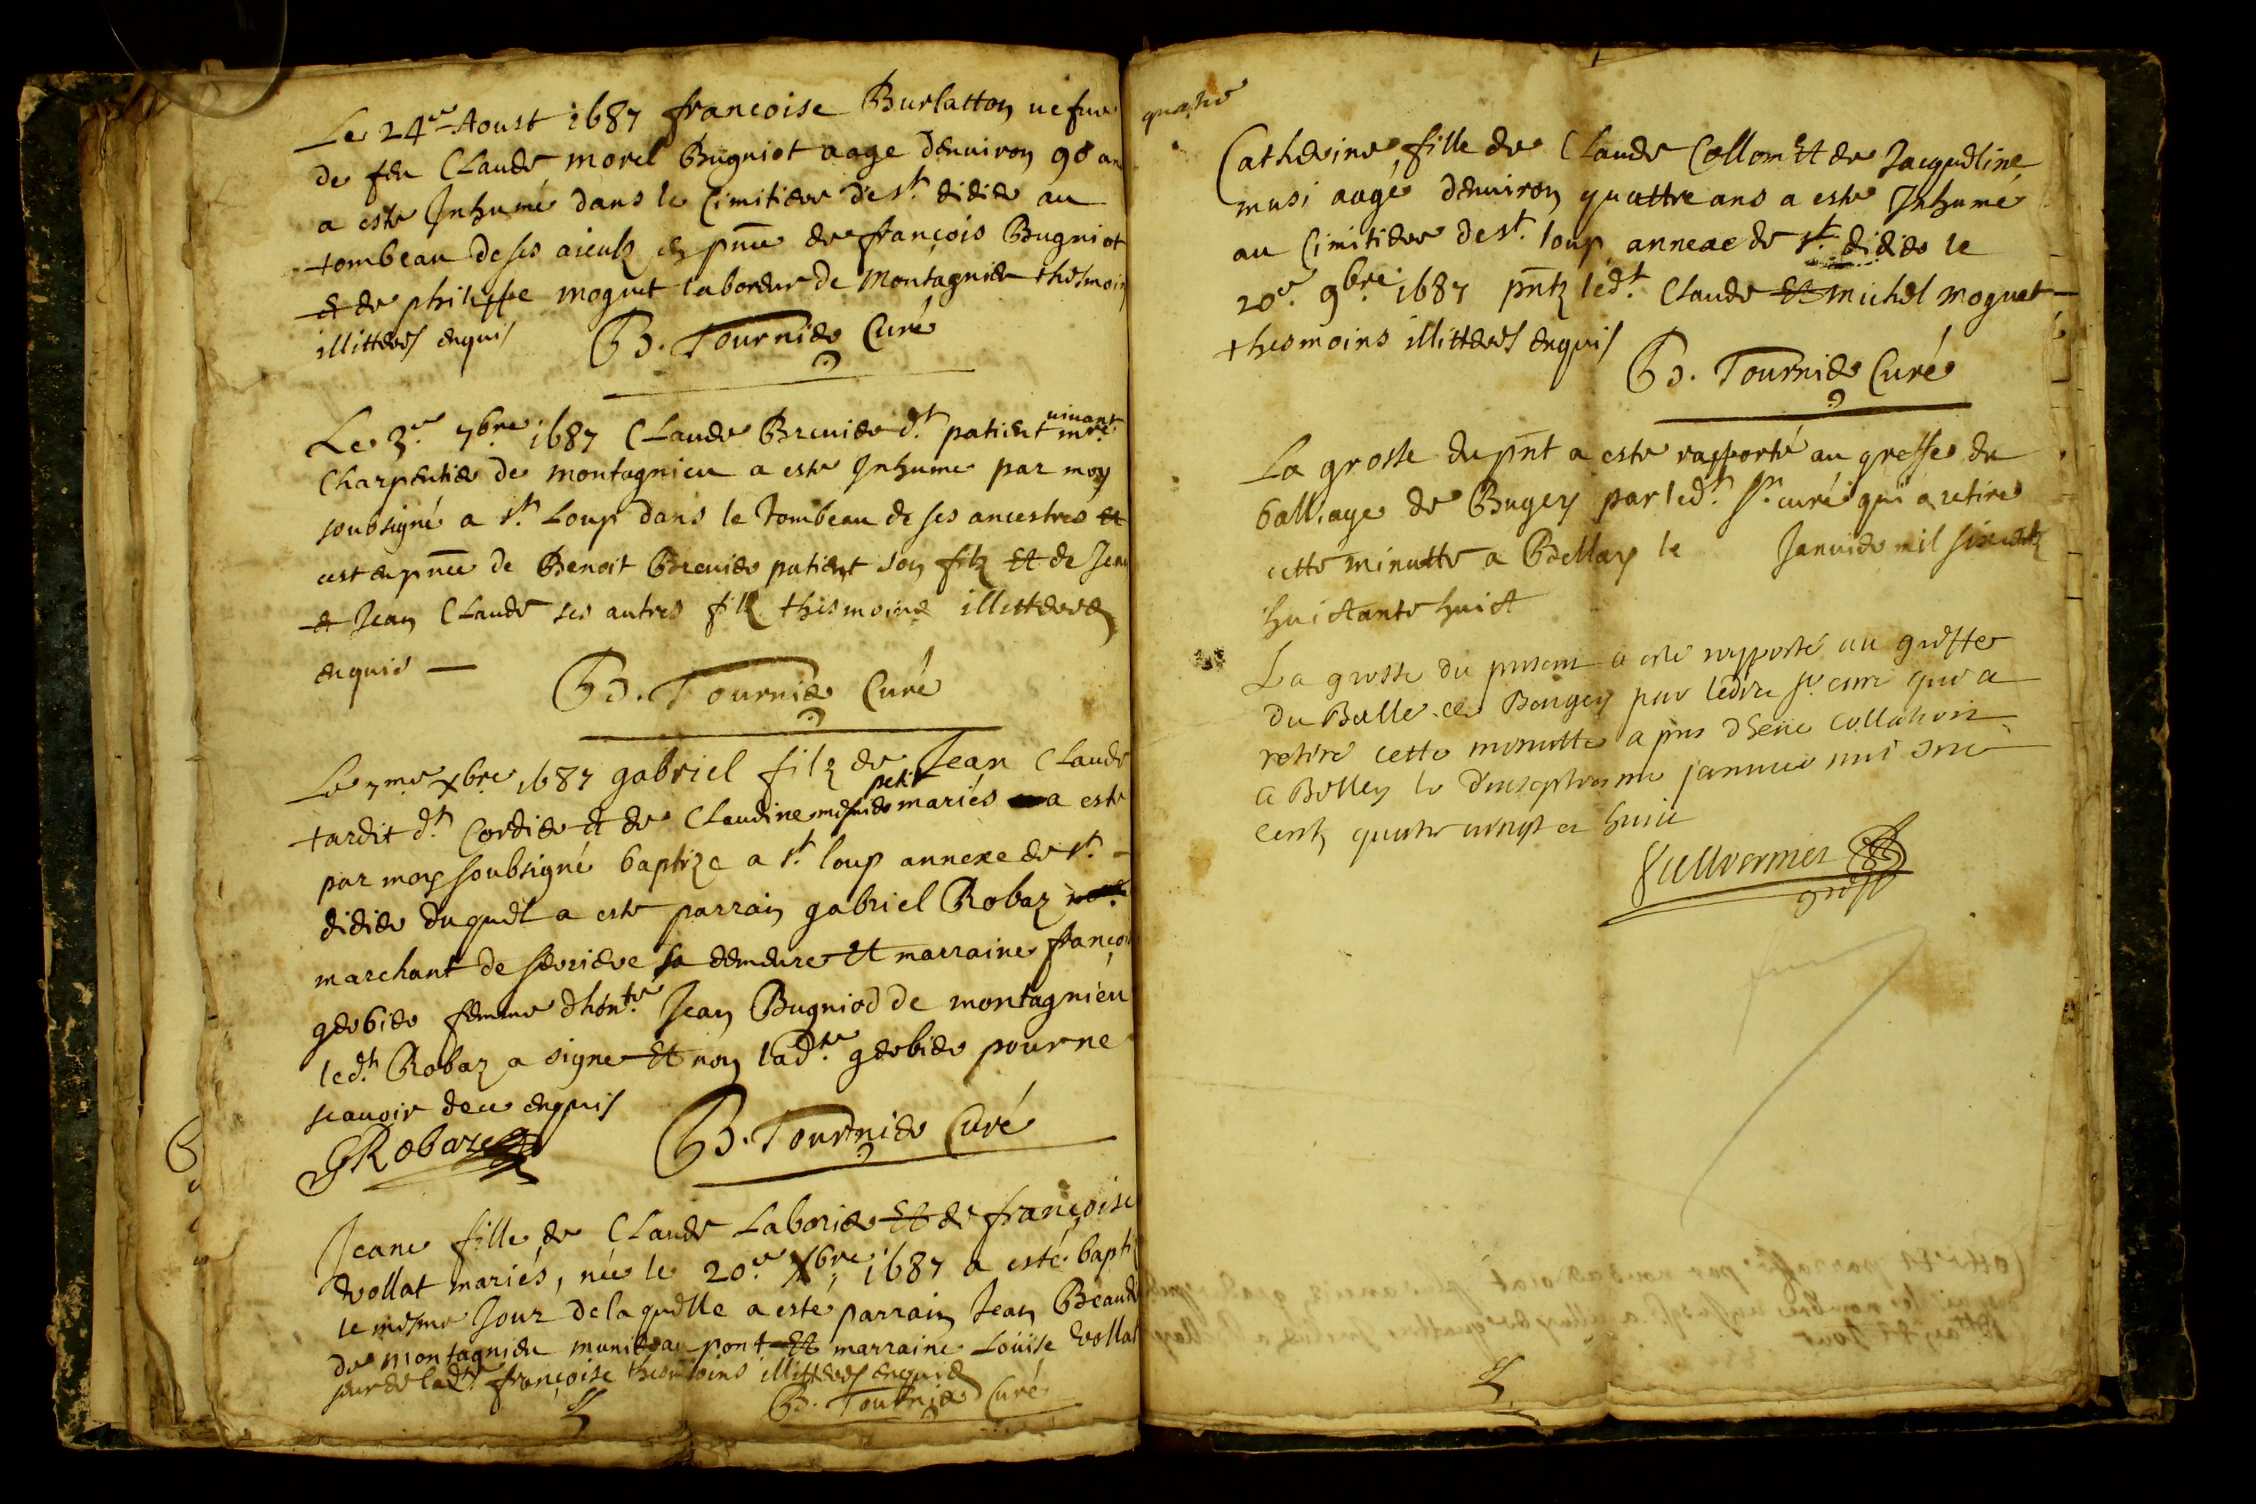 Le 24e Aoust 1687 francoise Burlatton uefue
de feu Claude morel Bugniot aage denuiron 98 an
a este Inhumé dans le Cimitiere de st. didier au
tombeau de ses aieulz en pnce de françois Bugniot
et de philippe moguet laboreur de Montagnieu thesmoin
illitteres enquis B. Tournier Curé
Le 3e 7bre 1687 Claude Breuier dt. patient uiuant mre.
Charpentier de montagnieu a este Inhume par moy
soubsigné a st. Loup dans le Tombeau de ses ancestres et
cest en pnce de Benoit Breuier patient son filz Et de
et Jean Claude ses autres filz thesmoins illitteres
enquis
B. Tournier Curé
Le 7me Xbre 1687 gabriel filz de Jean Claude
tardit dt. Cordier et de Claudine petit mariés a este
par moy soubsigné baptize a st. loup annexe de st.
didier duquel a este parrain gabriel Robaz
marchant de serriere sa demeure Et marraine françoi
gerbier femme dhonte. Jean Bugniod de montagnieu
ledt. Robaz a signe Et non ladte. gerbier pour ne
scauoir de ce enquis
GRobaz B. Tournier Curé
Jeane fille de Claude Laborier Et de françoise
vollat mariés, née le 20e Xbre 1687 a esté bapti
le mesme Jour de laquelle a esté parrain Jean
de montagnieu munier au pont Et marraine Loüise vollat
seur de ladte. françoise thesmoins illitteres enquis
B. Tournier Curé
quatre
Catherine fille de Claude Collom Et de Jacqueline
musi aagé denuiron quattre ans a este Inhumé
au Cimitiere de st. loup annexe de st. didier le
20e. 9bre 1687 pntz ledt. Claude Et michel moguet
thesmoins illitteres enquis
B. Tournier Curé
La grosse du pnt a este rapporté au greffe du
balliage de Bugey par ledt. sr. curé qui a retire
cette minutte a Bellay le Januier mil six centz
huictante huict
La grosse du present a esté rapporté au greffe
du Balle. de Bougey par ledit sr cure qui a
retiré cette minutte apres dheüe Collation
a Belley le dixseptiesme januier mil six
centz quatre vingt et huict